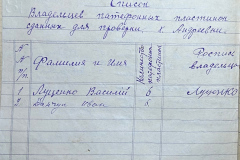 Список
Владельцев патефонных пластинок
сданных для проверки к Андрееви
№ п/п Фамилия и Имя Количество патефонных пластинок Роспись владельца
1 Луценко Василий 6 Луценко
2 6